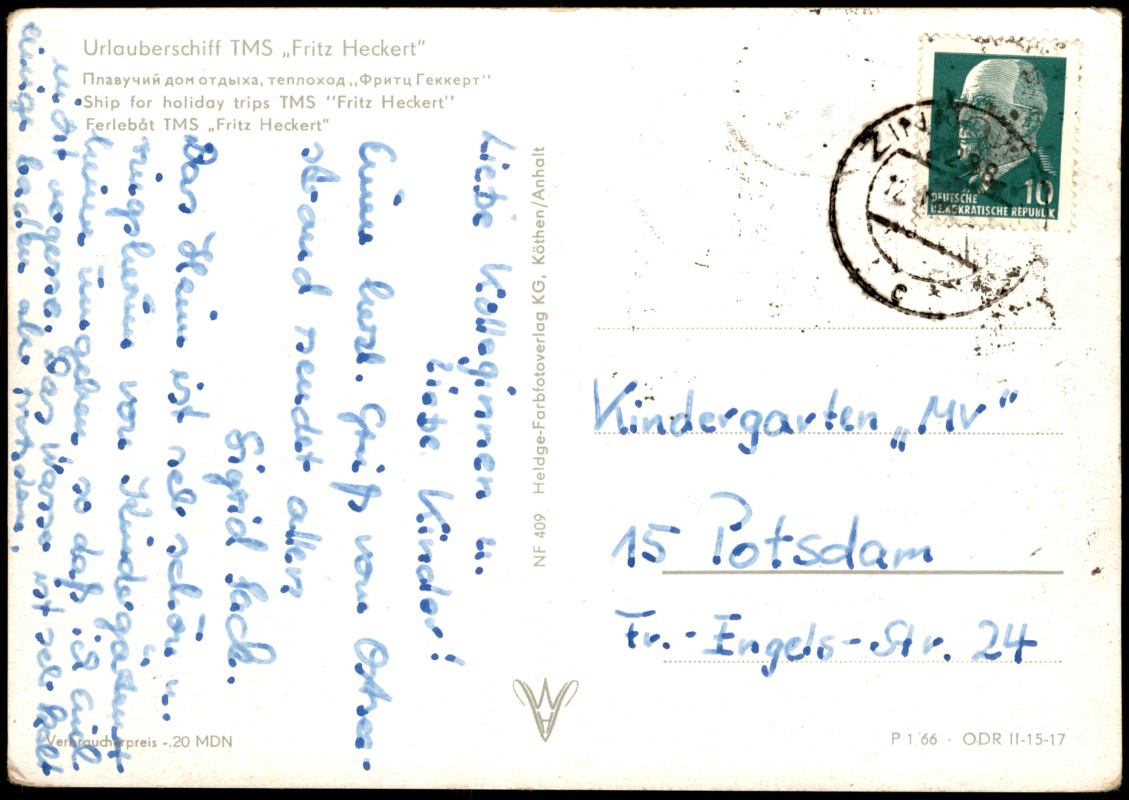 Urlauberschiff TMS „Fritz Heckert"
Плавучий дом отдыха, теплоход „Фритц Геккерт"
Ship for holiday trips TMS "Fritz Heckert"
Ferlebåt TMS „Fritz Heckert"
Liebe Kolleginnen u.
liebe Kinder!
Einen herzl. Gruß vom Ostsee-
strand sendet allen
Sigrid
Das Heim ist sehr schön u.
ringsherum von Kindergärten
umgeben so daß ich Euch
nicht vergesse. Das Wasser ist sehr kalt
einige baden aber trotzdem.
Verbraucherpreis -.20 MDN
NF 409 Heldge-Farbfotoverlag KG, Köthen/Anhalt
10
DEUTSCHE
DEMOKRATISCHE REPUBLIK
ZIN
12.
c
Kindergarten „MV"
15 Potsdam
Fr.-Engels-Str. 24
P 1/66 · ODR II-15-17